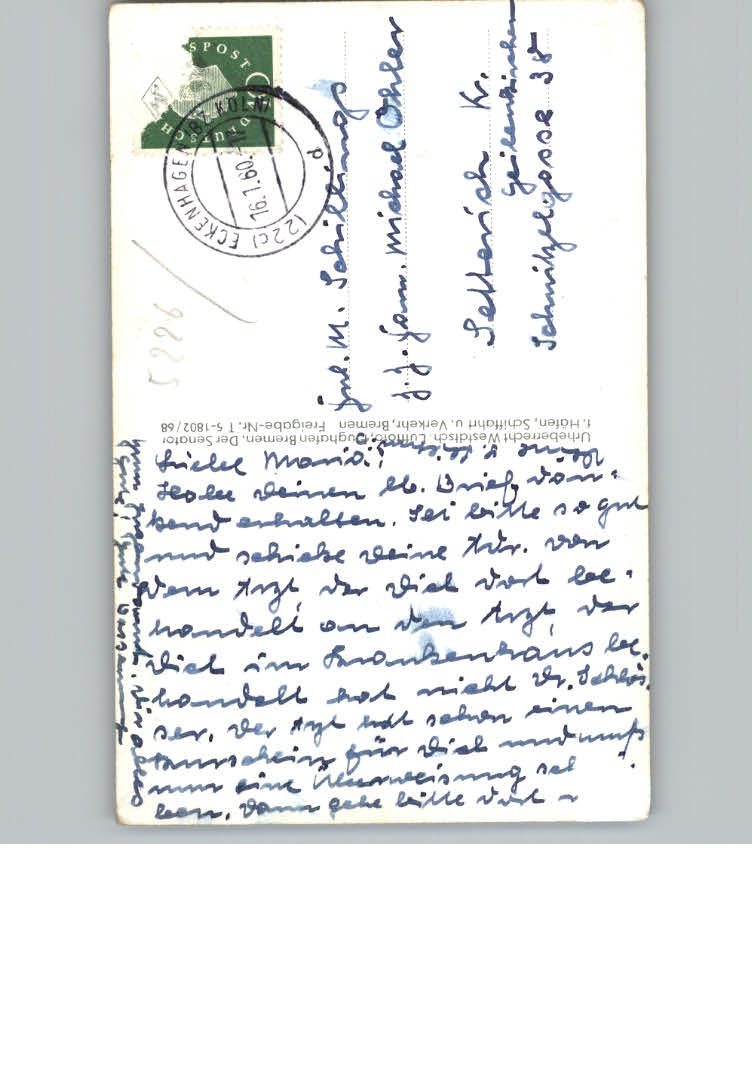 DEUTSCHE BUNDESPOST
(22c) ECKENHAGEN BZ. KÖLN
16.1.60.-11
d
5226
Frl. M. Schillings
z. Z. Fam. Michael Öhler
Setterich Kr.
Geilenkirchen
Schnitzelgasse 38
Urheberrecht Westdtsch. Luftfoto, Flughafen Bremen. Der Senator
f. Häfen, Schiffahrt u. Verkehr, Bremen Freigabe-Nr. T 5-1802/68
Liebe Maria!
Habe deinen lb. Brief dan-
kend erhalten. Sei bitte so gut
und schicke deine Adr. von
dem Arzt der dich dort be-
handelt an den Arzt, der
dich im Krankenhaus be-
handelt hat nicht Dr. Schlös-
ser. Der Arzt hat schon einen
für dich und muß
nur eine Überweisung
ben. Dann gehe bitte dort